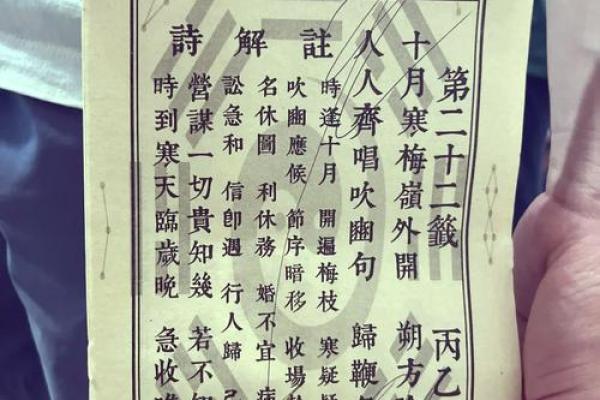 第二十二籤 丙乙
十月寒梅嶺外開 朔方
人人齊唱吹豳句 歸鞭
註
時逢十月 開遍梅枝 寒疑
吹豳應候 節序暗移 收場
解
名休圖 利休務 婚不宜 病
訟急和 信即遇 行人歸
詩
營謀一切貴知幾 若不
時到寒天臨歲晚 急收